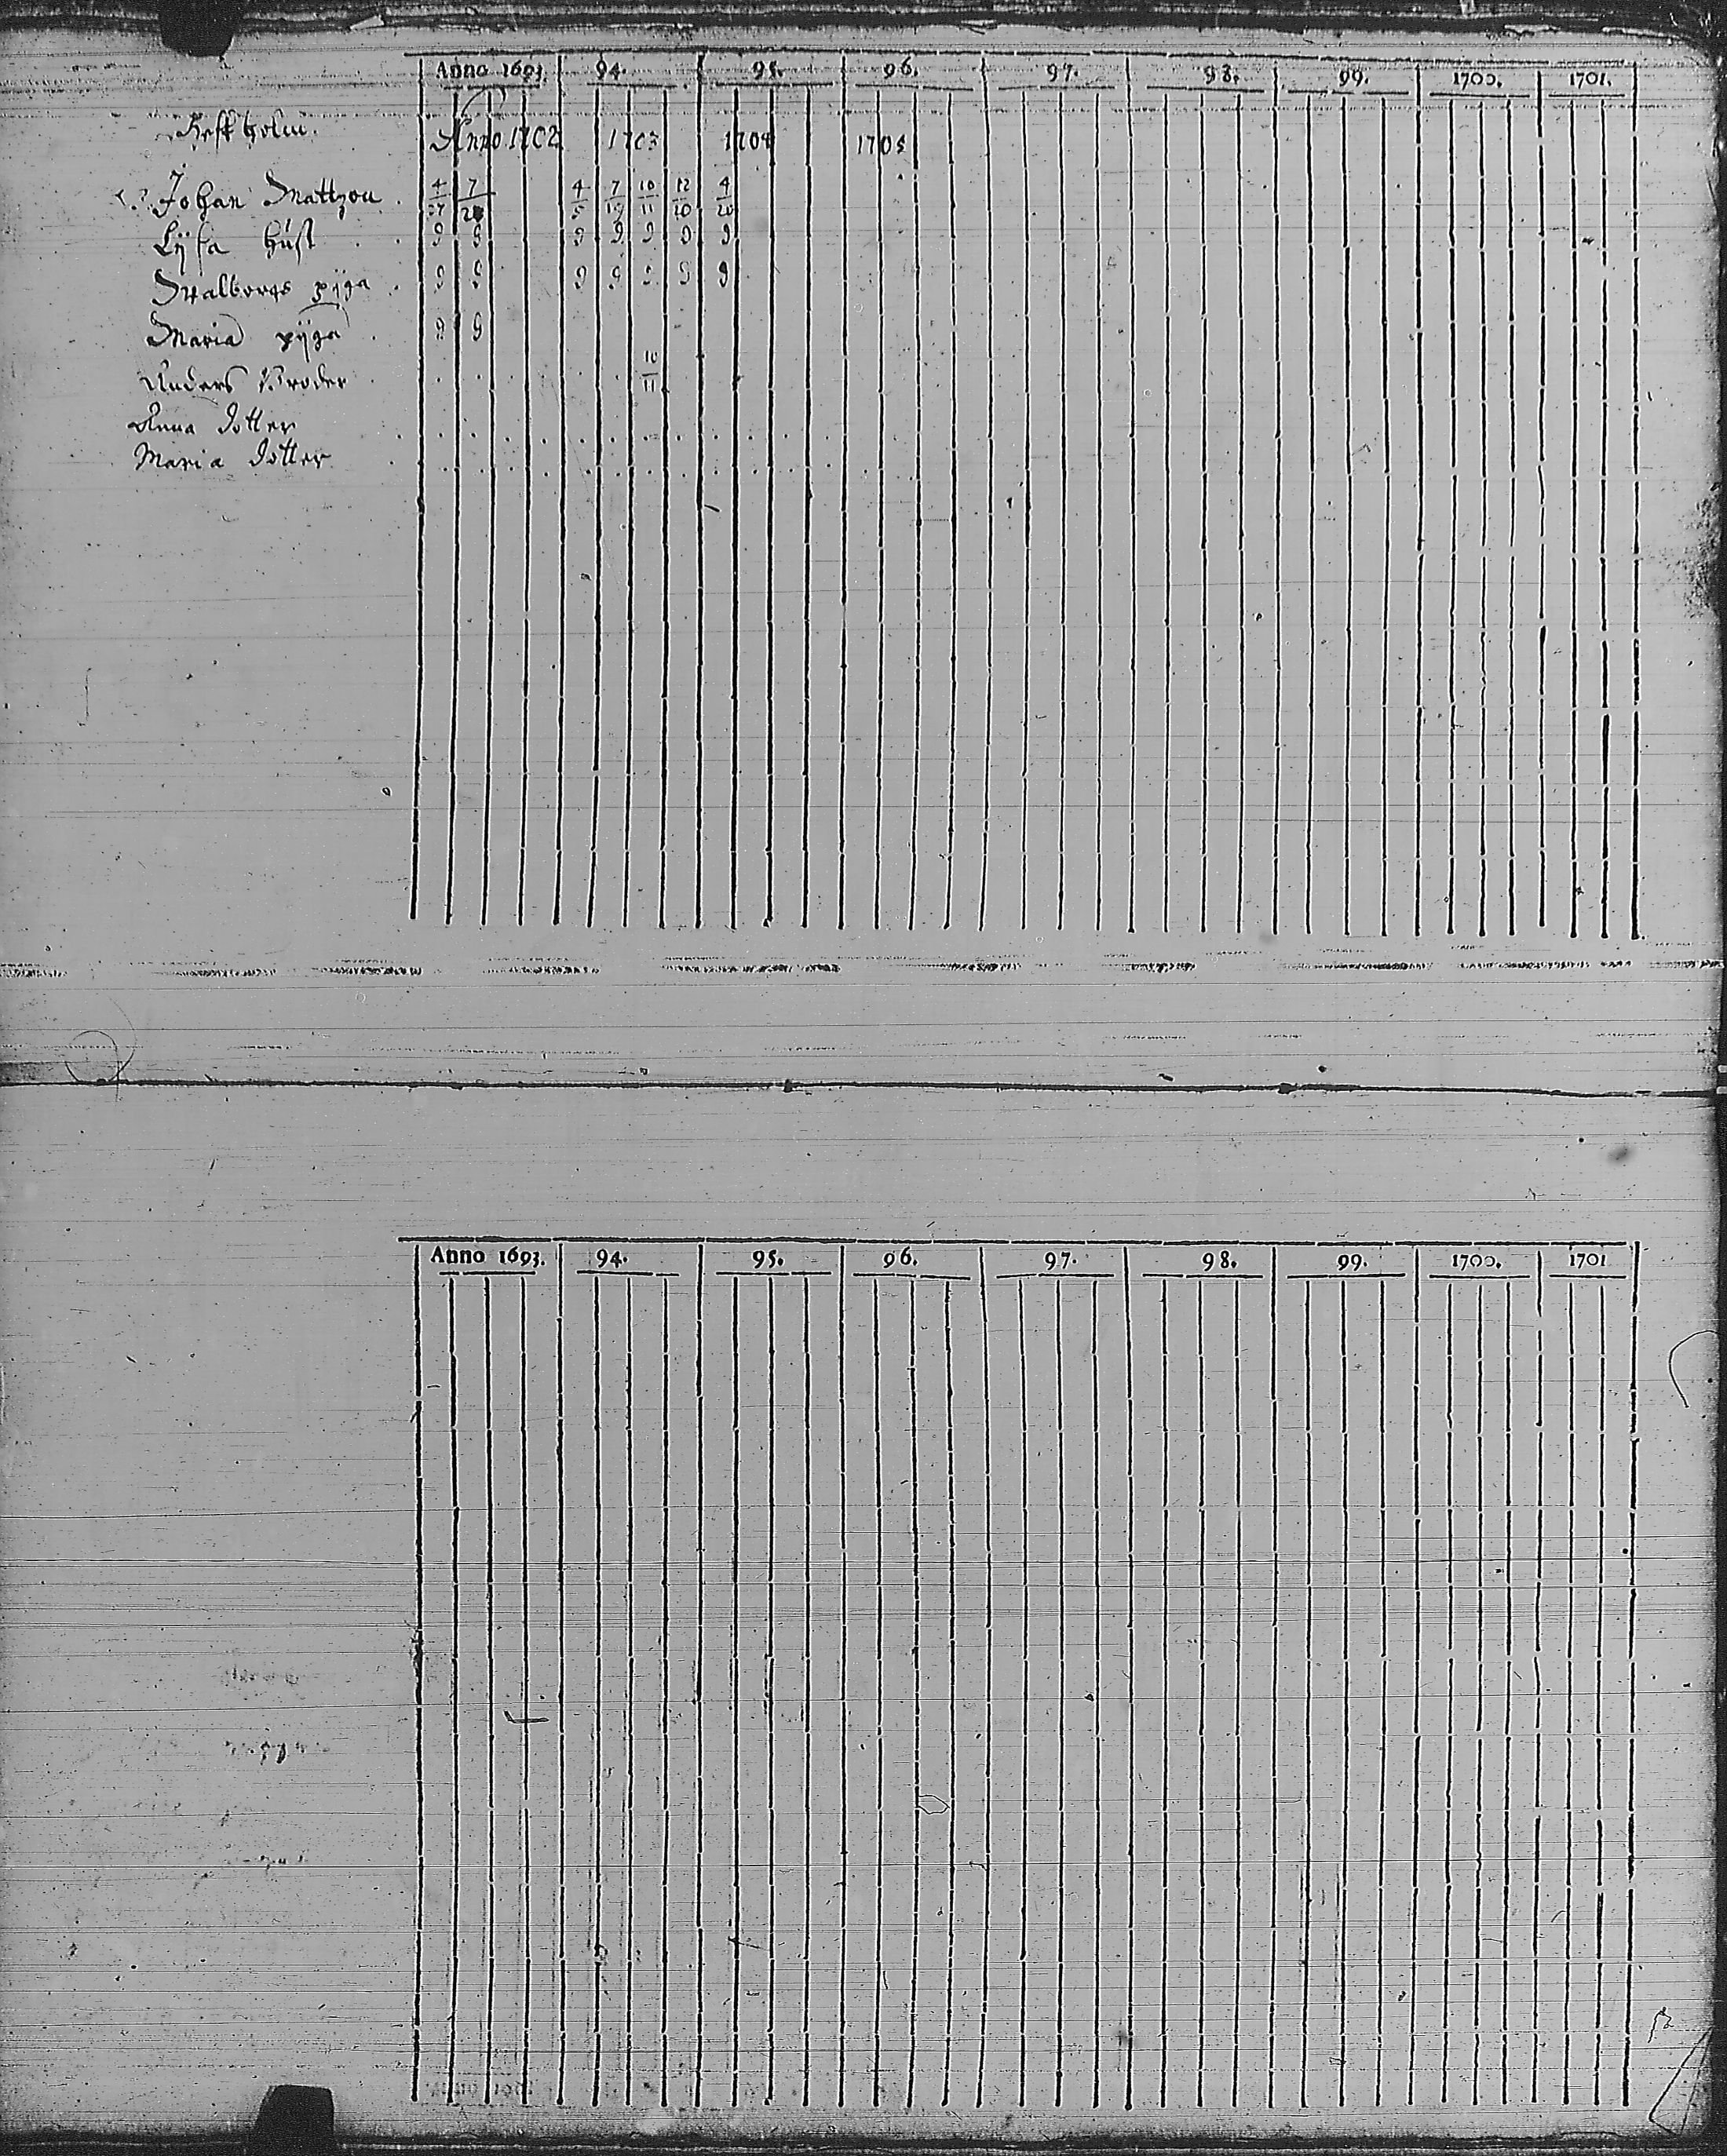 Anno 1693. 94. 95. 96. 97. 98. 99. 1700. 1701.
holm. Anno 1702 1703 1704 1705
Johan Mattzon 4/27 7/20 4/5 7/19 10/11 12/20 4/20
Lijsa hust 9 9 9 9 9 9 9
Walborgs pijga 9 9 9 9 9 9 9
Maria pijga 9 9
Anders Broder 10/11
Anna dotter
Maria dotter
Anno 1693. 94. 95. 96. 97. 98. 99. 1700. 1701